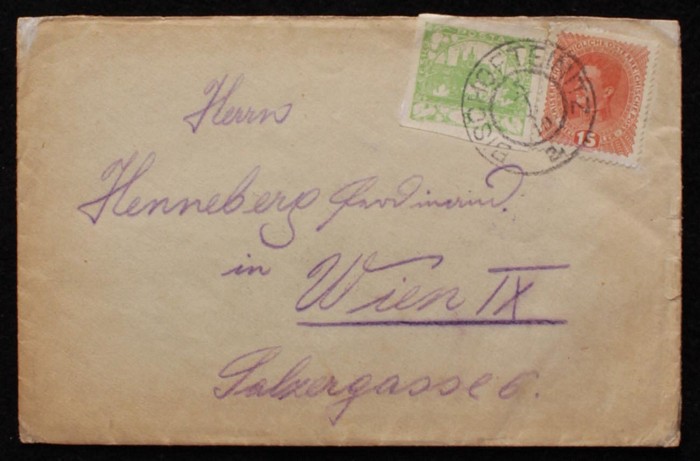 Herrn
Henneberg Ferdinand.
in
Wien IX
Salzergasse 6.
BISCHOFTEINITZ
2
15